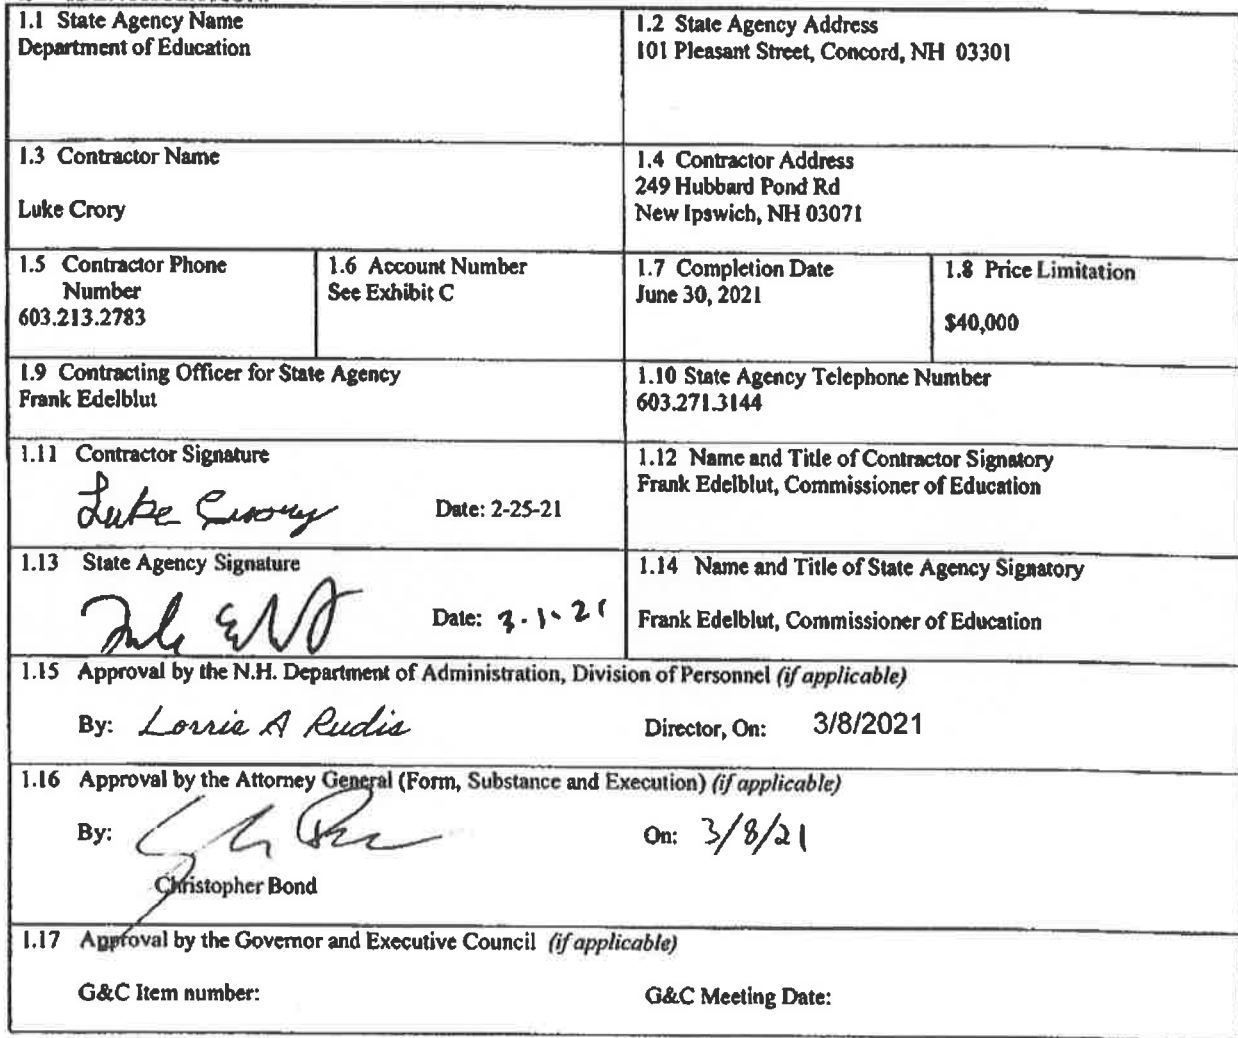 1.1 State Agency Name
Department of Education
1.2 State Agency Address
101 Pleasant Street, Concord, NH 03301
1.3 Contractor Name
Luke Crory
1.4 Contractor Address
249 Hubbard Pond Rd
New Ipswich, NH 03071
1.5 Contractor Phone
Number
603.213.2783
1.6 Account Number
See Exhibit C
1.7 Completion Date
June 30, 2021
1.8 Price Limitation
$40,000
1.9 Contracting Officer for State Agency
Frank Edelblut
1.10 State Agency Telephone Number
603.271.3144
1.11 Contractor Signature
Luke Crory
Date: 2-25-21
1.12 Name and Title of Contractor Signatory
Frank Edelblut, Commissioner of Education
1.13 State Agency Signature
Date: 3-1-21
1.14 Name and Title of State Agency Signatory
Frank Edelblut, Commissioner of Education
1.15 Approval by the N.H. Department of Administration, Division of Personnel (if applicable)
By: Lorrie A Rudis
Director, On: 3/8/2021
1.16 Approval by the Attorney General (Form, Substance and Execution) (if applicable)
By:
On: 3/8/21
Christopher Bond
1.17 Approval by the Governor and Executive Council (if applicable)
G&C Item number:
G&C Meeting Date: